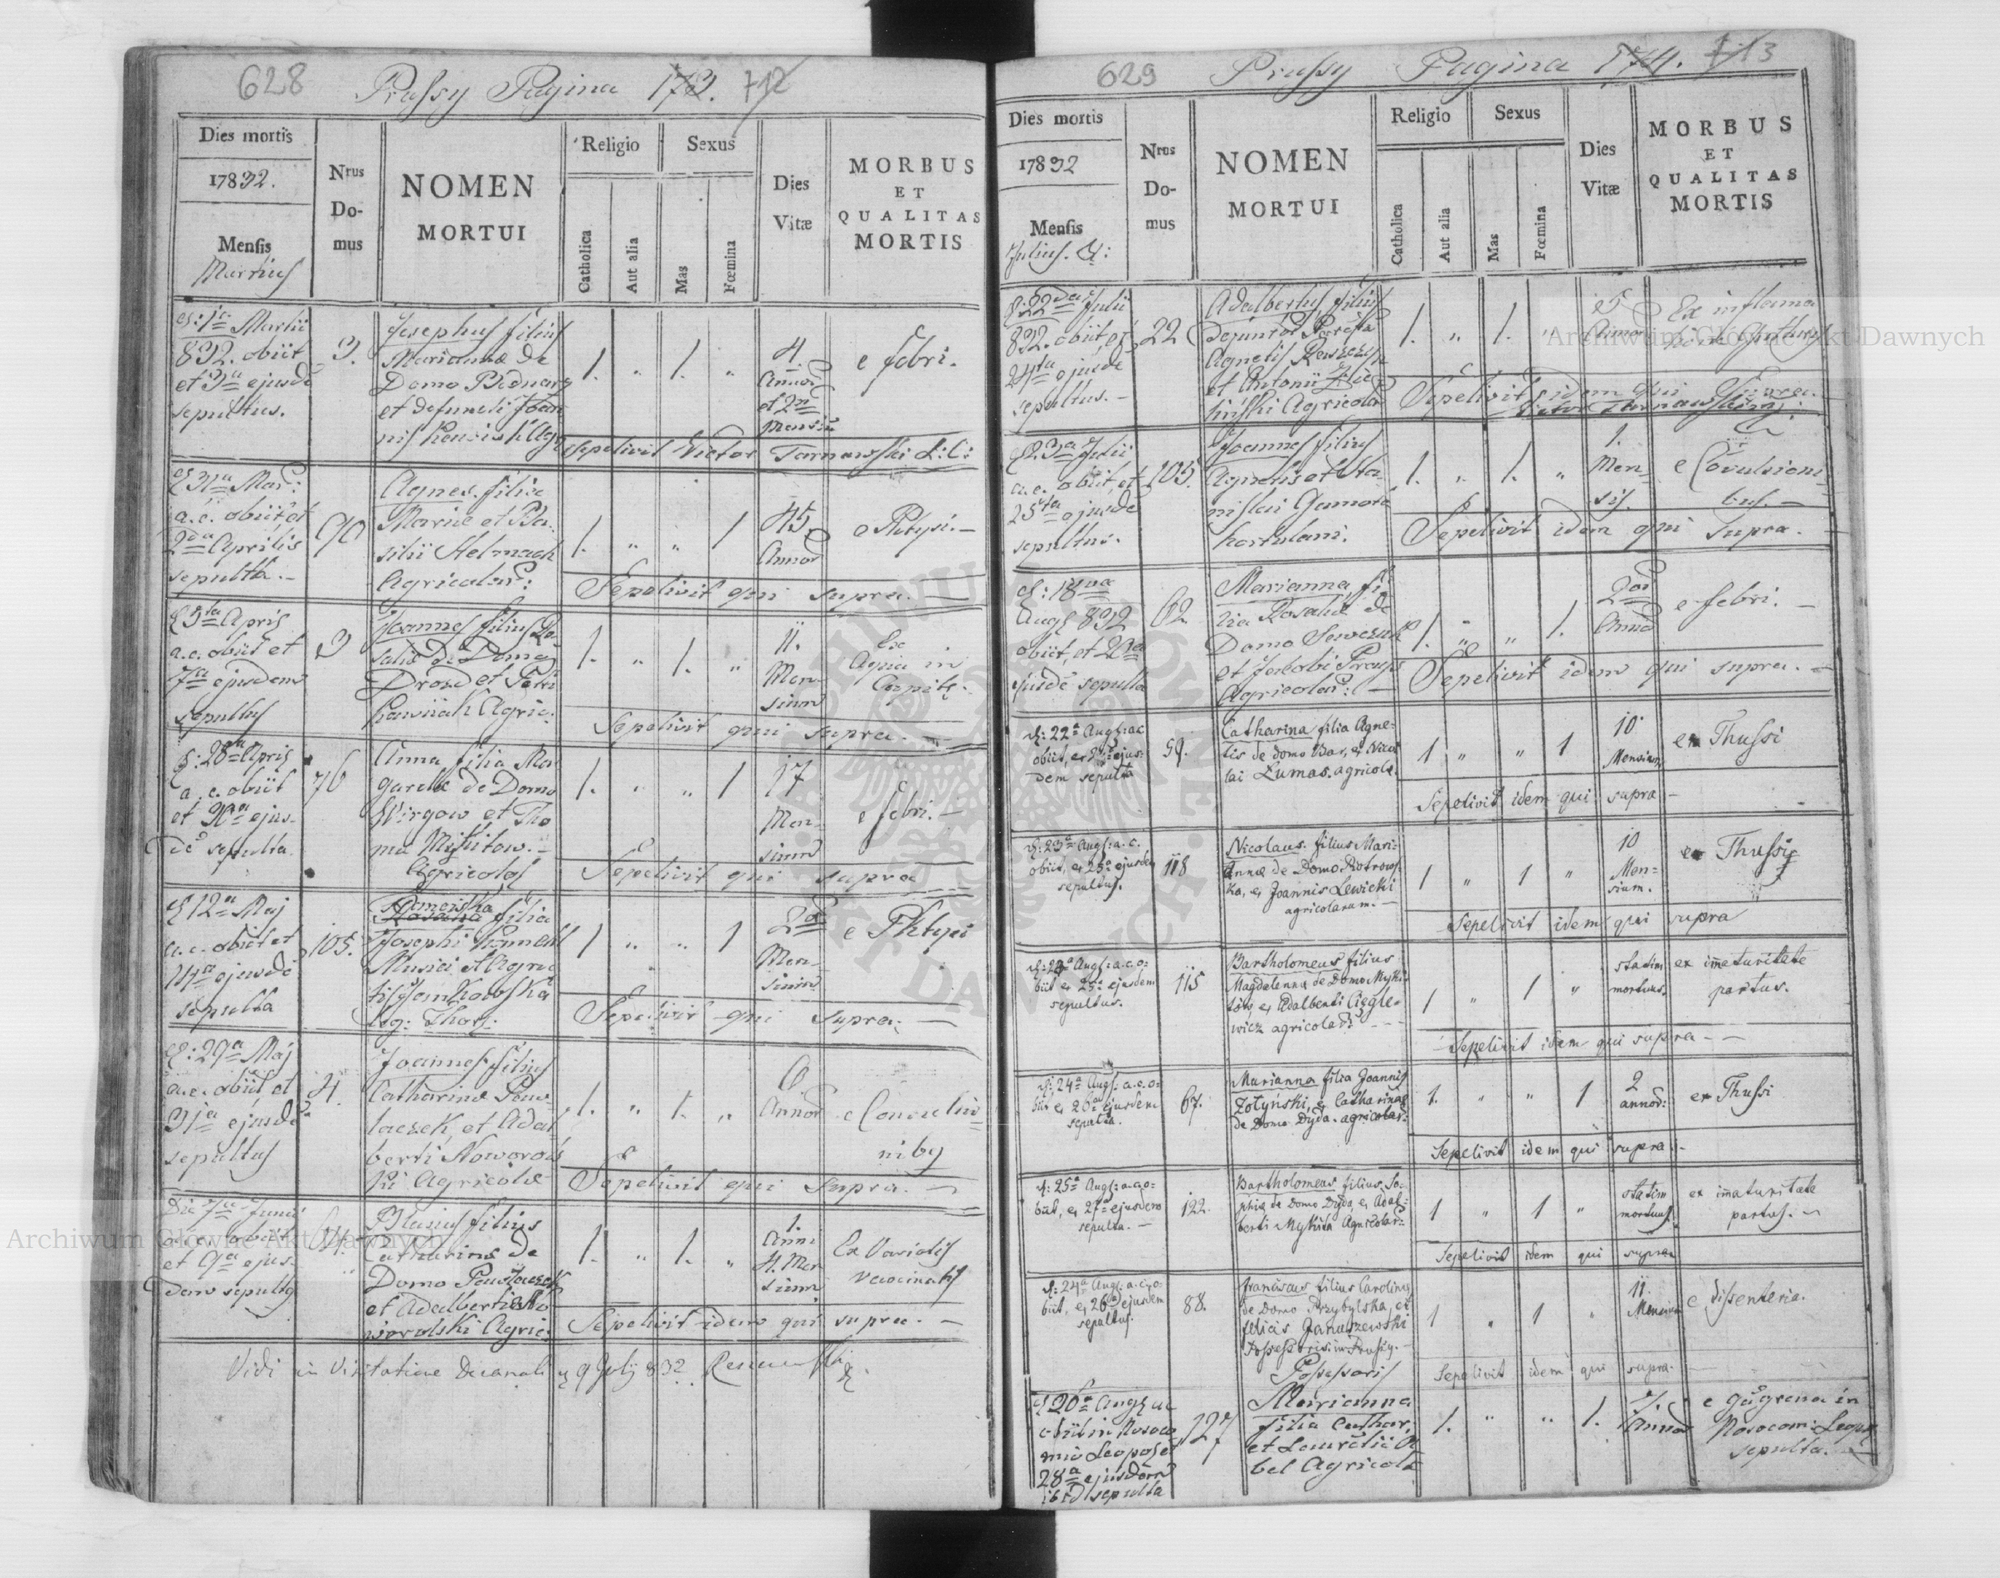 628 Prussy Pagina 173. 712
Dies mortis
17832.
Mensis
Martius
Nrus
Do-
mus
NOMEN
MORTUI
Religio
Catholica
Aut alia
Sexus
Mas
Fœmina
Dies
Vitæ
MORBUS
ET
QUALITAS
MORTIS
1a Martii
832. obiit
et 3a ejusdē
sepultus.
3.
Josephus filius
Mariannæ de
Domo Bednarz
et defuncti Joan
1. „ 1. „
4.
Annor
et 2
Mensiū
e febri.
Sepelivit Victor Tarnawski L: C:
31a Mar:
a. c. obiit et
2da Aprilis
sepulta. -
90
Agnes filia
Mariæ et Ba
silii Helmach
Agricolar:
1. „ „ 1
45
Annor
e Phtysi. -
Sepelivit qui supra. -
5ta Apris
a. c. obiit et
7ma ejusdem
sepultus
3
Joannes filius Ro
saliæ de Domo
Drozd et Petri
Agric:
1. „ 1. „
11.
Men-
sium
Ex
Aqua in
Capite.
Sepelivit qui supra. -
28va Apris
a. c. obiit
et 30a ejus-
dē sepulta.
76
Anna filia Mar
garethæ de Domo
et Tho
ma Mykitow. -
Agricolar
1. „ „ 1
17
Men-
sium
e febri. -
Sepelivit qui supra
12a Maj
a. c. obiit et
14a ejusdē
sepulta
105.
filia
Josephi
Musici et Agne
tis
1 „ „ 1
2
Men-
sium
e Phtysi
Sepelivit qui supra. -
29a Maj
a. c. obiit et
31a ejusdē
sepultus
4.
Joannes filius
Catharinæ Paw
laczek, et Adal
berti Noworols
ki Agricolæ
1. „ 1. „
6
Annor
e Convulsio
nibus
Sepelivit qui supra. -
Die 7ma Junii
a. c. obiit
et 9a ejus-
dem sepultus
Blasius filius
Catharinæ de
Domo Pawlaczek
et Adalberti No
worolski Agric:
1. „ 1. „
1.
Anni
4. Men
sium
Ex Variolis
vaccinatis
Sepelivit idem qui supra. -
Vidi in Visitatione Decanali 9 Julj 832
629 Prussy Pagina 174. 713
Dies mortis
17832
Mensis
Julius.
Nrus
Do-
mus
NOMEN
MORTUI
Religio
Catholica
Aut alia
Sexus
Mas
Fœmina
Dies
Vitæ
MORBUS
ET
QUALITAS
MORTIS
22da Julii
832. obiit et
24ta ejusdē
sepultus. -
22
Adalbertus filius
Agnetis
et Antonii
Agricolar
1. „ 1. „
5
Annor
Ex inflama
Sepelivit idem qui supra
Victor Tarnawski
23a Julii
a. c. obiit, et
25ta ejusdē
sepultus.
105.
Joannes filius
Agnetis et Sta
nislai Gamota
hortulani.
1. „ 1. „
1.
Men
sis.
e Covulsioni
bus. -
Sepelivit idem qui supra. -
18va
Augs 832
obiit, et 20a
ejusdē sepulta
62.
Marianna fi
lia Rosaliæ de
Domo Szewczuk
et Jacobi
Agricolar: -
1. „ „ 1.
2
Annor
e febri. -
Sepelivit idem qui supra. -
22a Augs: ac
obiit, et ejus-
dem sepulta
59.
Catharina filia Agne-
tis de domo Bar, et Nico
lai Lumas. agricolæ
1 „ „ 1
10
Mensium
ex Thussi
Sepelivit idem qui supra -
23a Augs: a. c.
obiit, et 25a ejusdem
sepultus.
118
Nicolaus filius Mari-
annæ de Domo Piotrows-
ka, et Joannis Lewicki
agricolarum. -
1 „ 1 „
10
Men-
sium.
ex Thussi
Sepelivit idem qui supra
Augs: a. c. o-
biit et 25a ejusdem
sepultus.
115
Bartholomeus filius
Magdalenna de Domo Myki-
tów, et Adalberti Cięgle-
wicz agricolar
1 „ 1 „
statim
mortuus.
ex immaturitate
partus.
Sepelivit idem qui supra - -
24a Augs: a. c. o-
biit et 26a ejusdem
sepulta.
67.
Marianna filia Joannis
Zołyński, et Catharinæ
de Domo Dyda. agricolar:
1. „ „ 1
2
annor:
ex Thussi
Sepelivit idem qui supra. -
25a Augs: a. c. o-
biit, et 27a ejusdem
sepultus. -
122.
Bartholomeus filius So-
phiæ de Domo Dyda, et Adal-
berti Mykita Agricolar:
1 „ 1 „
statim
mortuus.
ex immaturitate
partus. -
Sepelivit idem qui supra
24a Augs: a. c. o-
biit, et 26a ejusdem
sepultus.
88.
Franciscus filius Carolinæ
de Domo Przybylska, et
Felicis Januszewski
Possessoris in Prussy. -
Possessoris
1 „ 1 „
11.
Mensium
e dissenteria.
Sepelivit idem qui supra. -
26a Augs ac
obiit in Nosoco
mio Leopos et
28a ejusdem
ibid sepulta
127
Marianna
filia Cathar:
et Laurentii
bel Agricolæ
1. „ „ 1.
7.
Annor
e gāgrena in
Nosocomi: Leopos
sepulta. -
Archiwum Główne Akt Dawnych
Archiwum Główne Akt Dawnych
ARCHIWUM GŁÓWNE AKT DAWNYCH